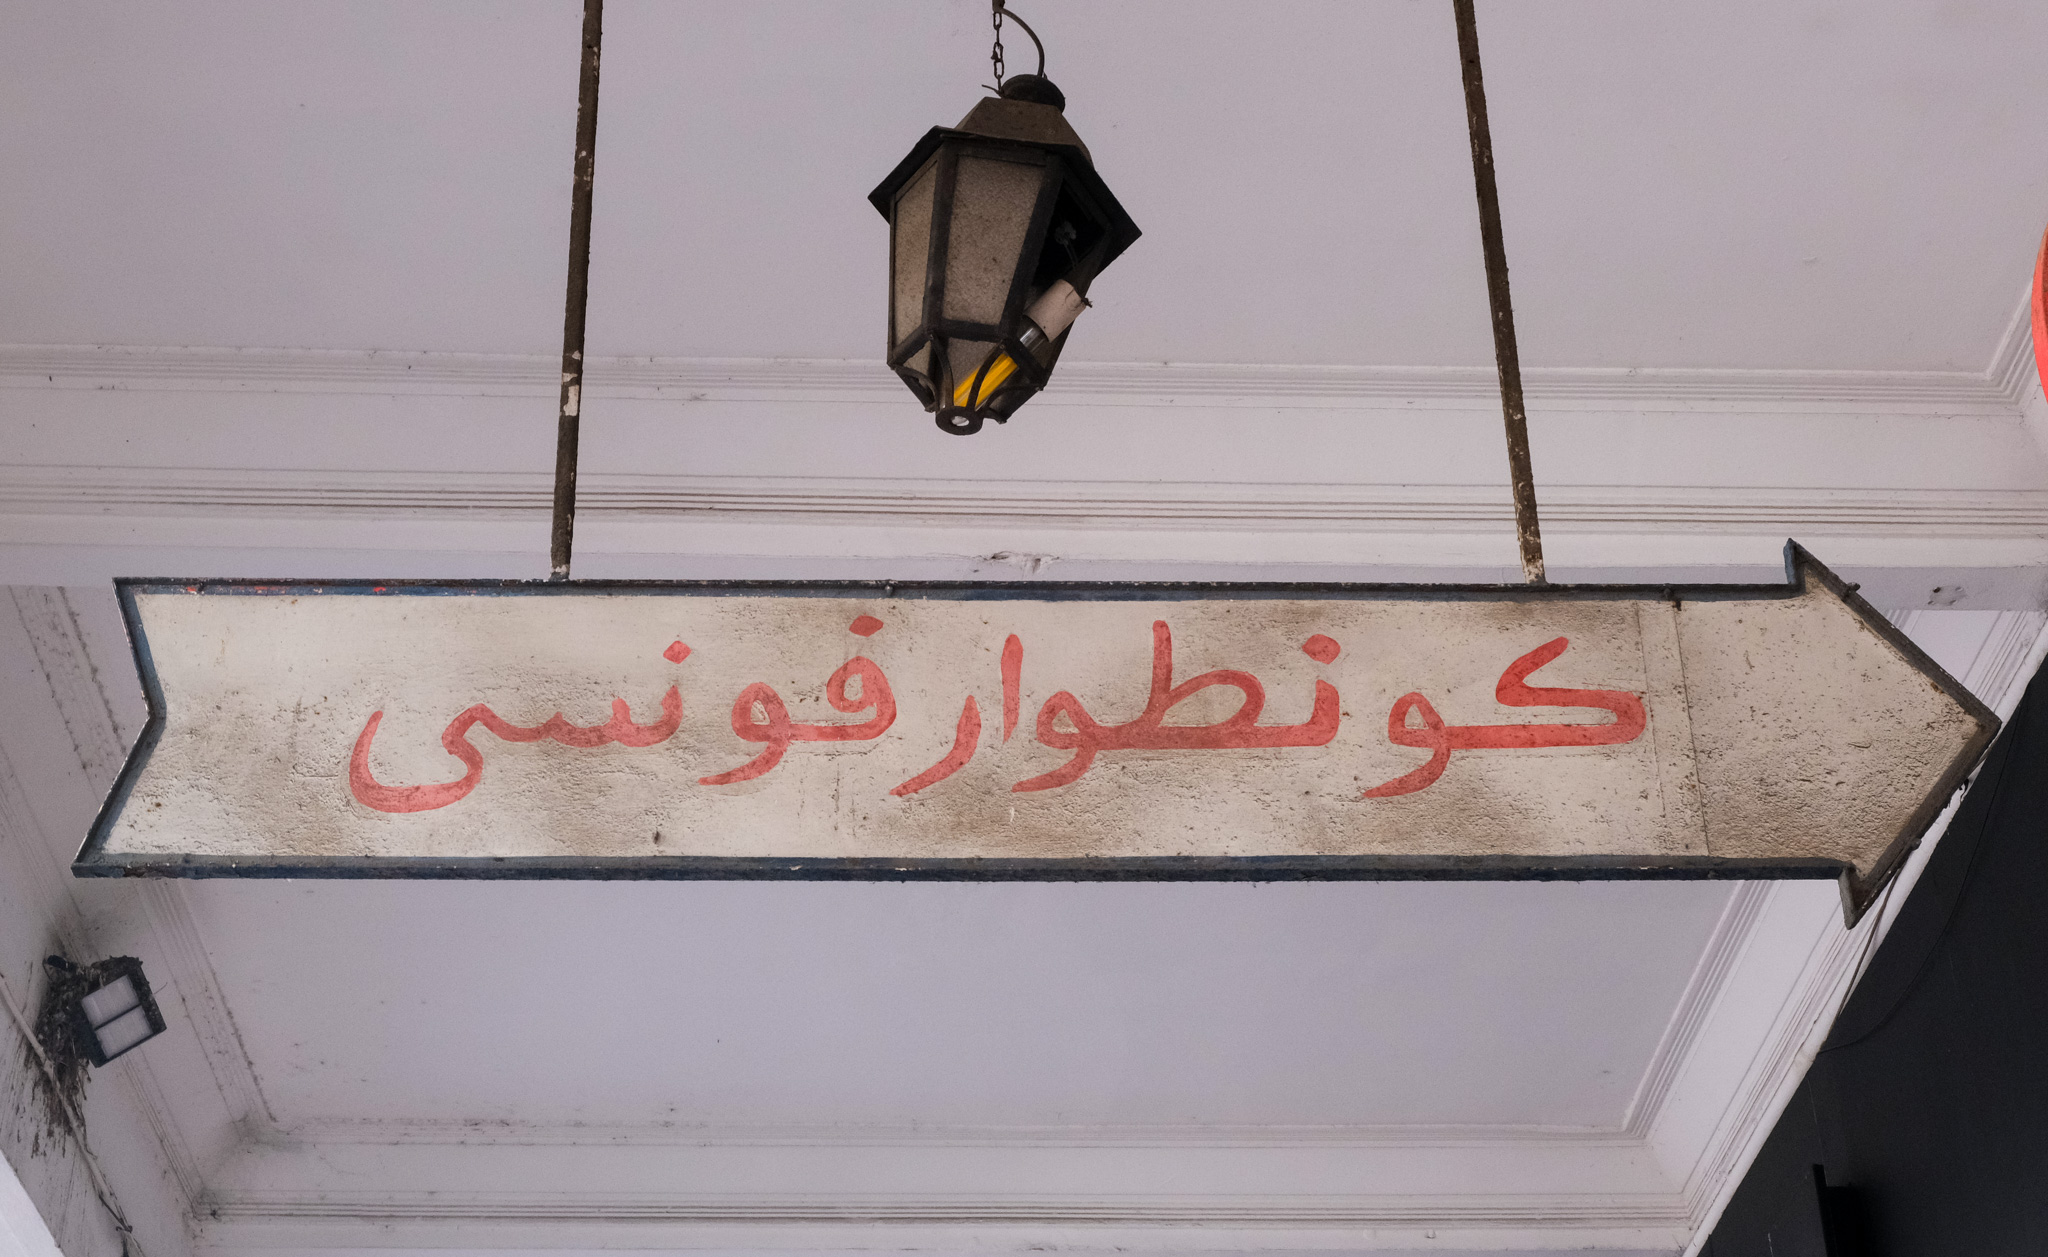 كونطوار فونسى